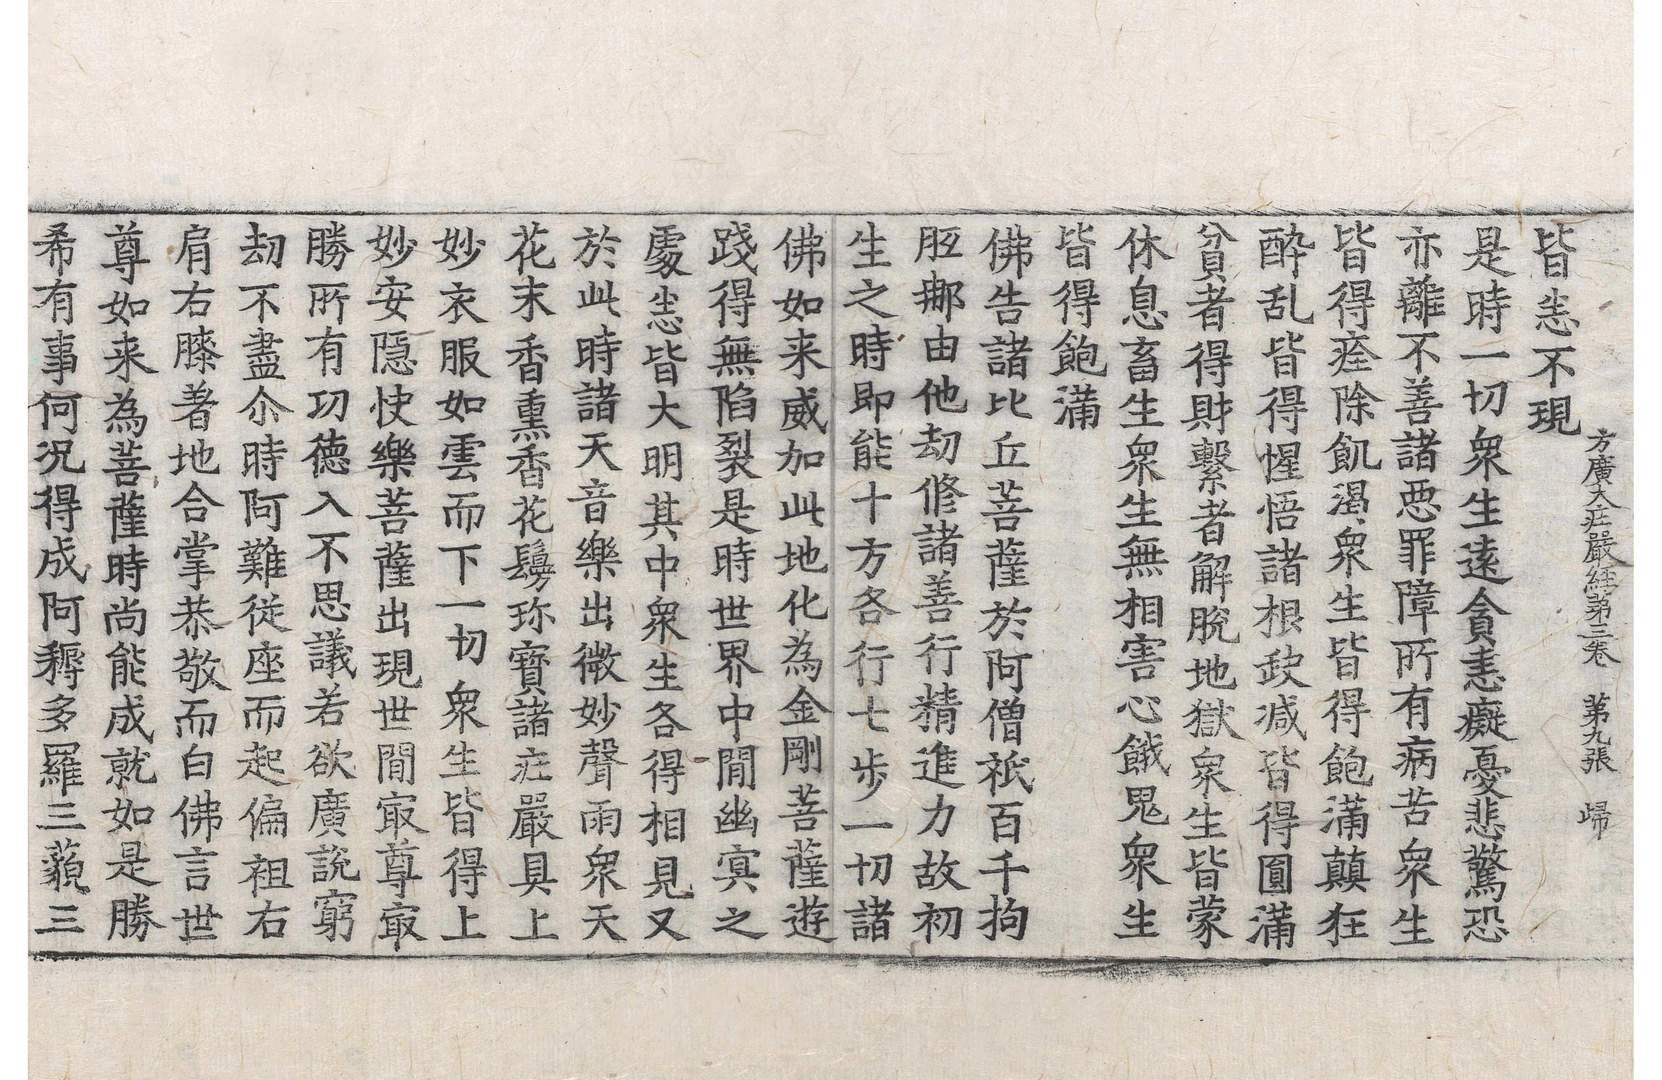 方廣大庄嚴経第三巻 第九張 歸
皆悉不現
是時一切衆生遠貪恚癡憂悲驚恐
亦離不善諸惡罪障所有病苦衆生
皆得痊除飢渇衆生皆得飽滿顛狂
酔乱皆得惺悟諸根缺减皆得圓滿
貧者得財繋者解脫地獄衆生皆蒙
休息畜生衆生無相害心餓鬼衆生
皆得飽滿
佛告諸比丘菩薩於阿僧祇百千拘
胝那由他劫修諸善行精進力故初
生之時即能十方各行七步一切諸
佛如来威加此地化為金剛菩薩遊
踐得無陷裂是時世界中閒幽㝠之
處悉皆大明其中衆生各得相見又
於此時諸天音樂出微妙聲雨衆天
花末香熏香花鬘珎寶諸庄嚴具上
妙衣服如雲而下一切衆生皆得上
妙安隱快樂菩薩出現世閒㝡尊㝡
勝所有功德入不思議若欲廣說窮
劫不盡尒時阿難従座而起偏袒右
肩右膝著地合掌恭敬而白佛言世
尊如来為菩薩時尚能成就如是勝
希有事何況得成阿耨多羅三藐三